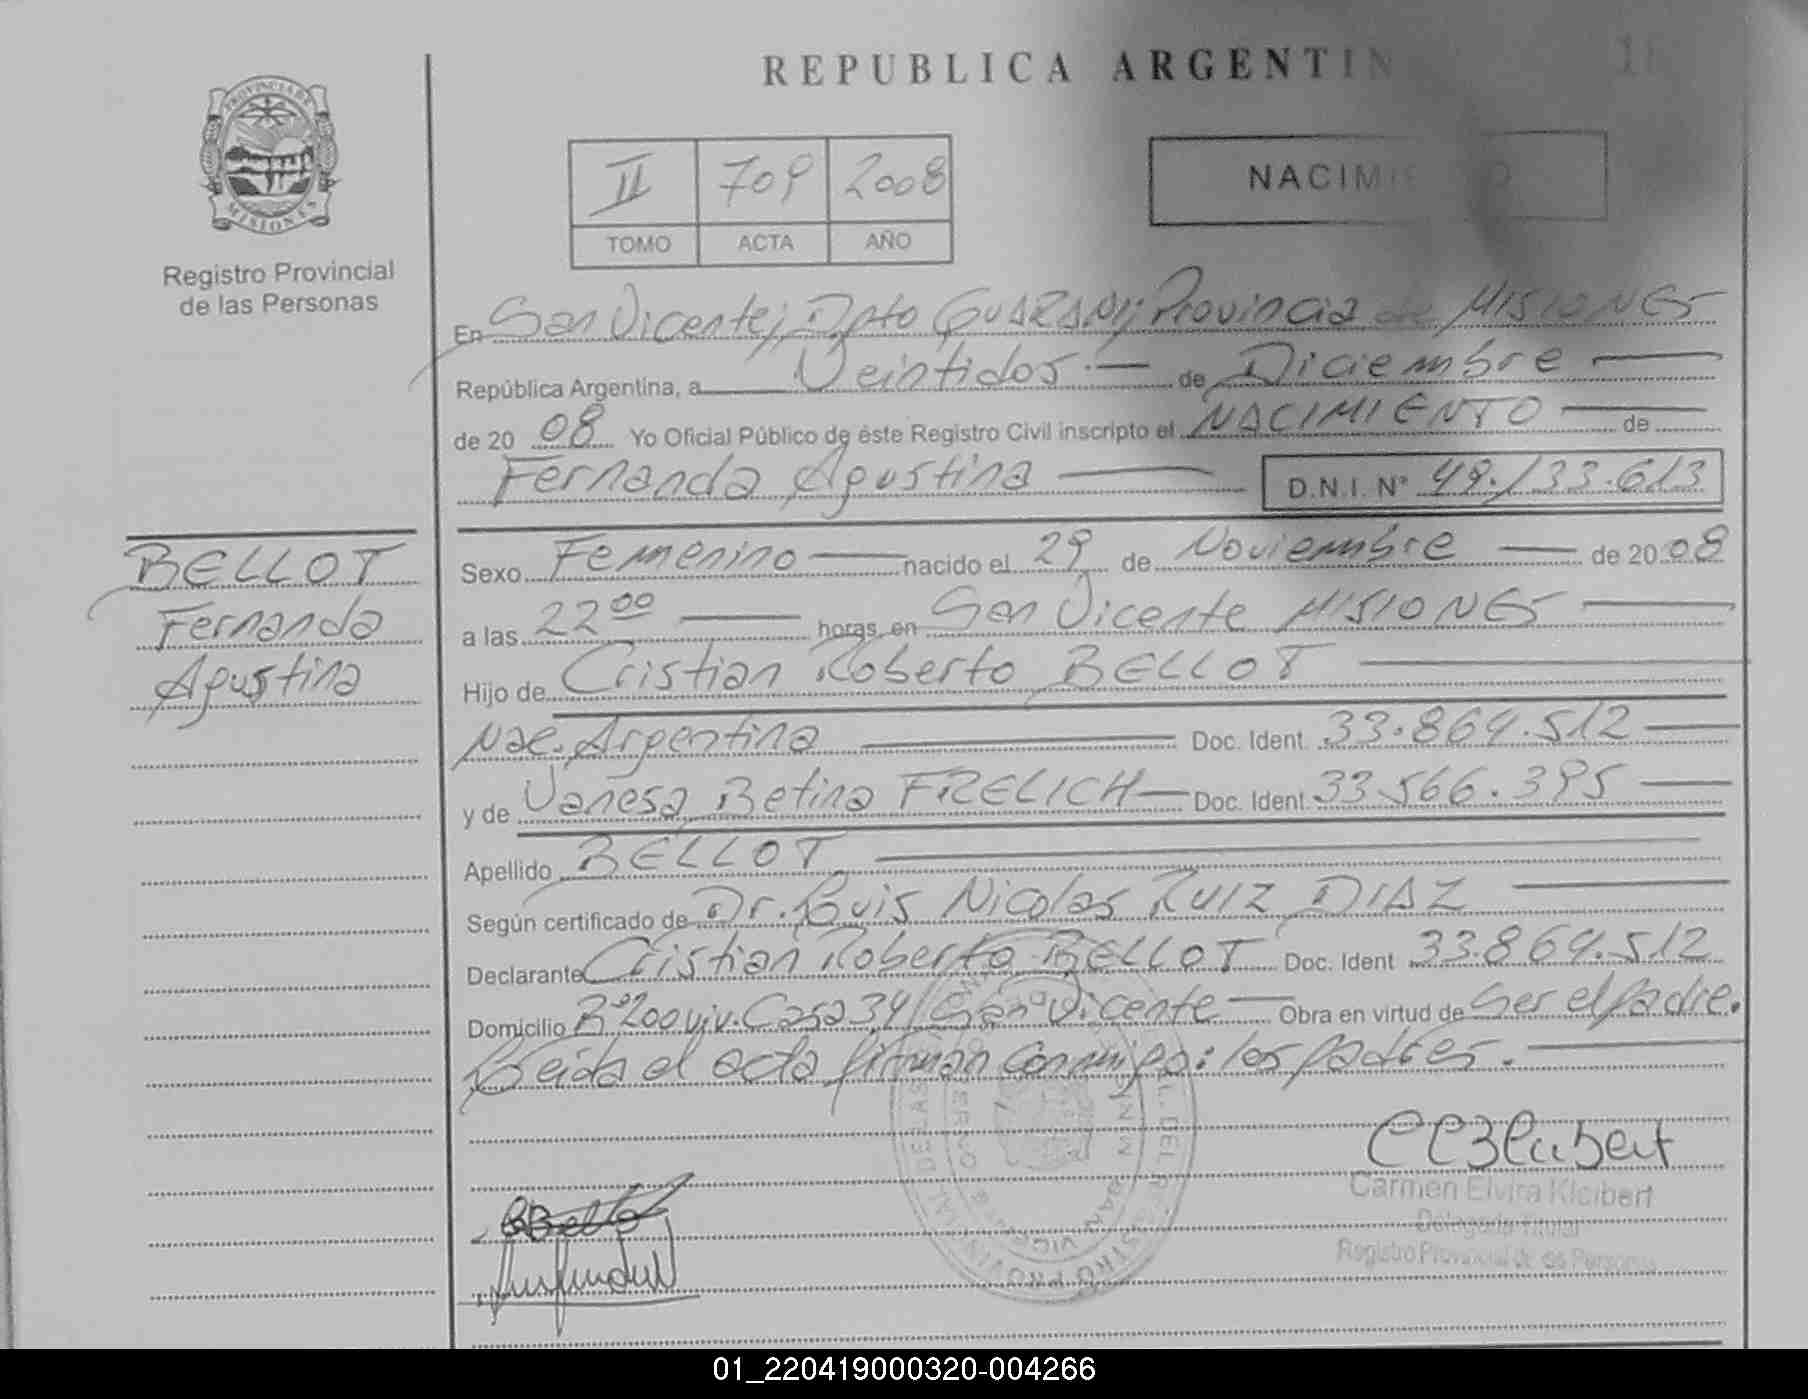 REPUBLICA ARGENTIN
PROVINCIA DE
MISIONES
Registro Provincial
de las Personas
II 709 2008
TOMO ACTA AÑO
NACIMIENTO
En San Vicente, Dpto GUARANI; Provincia de MISIONES
República Argentina, a Veintidos de Diciembre
de 20 08 Yo Oficial Público de éste Registro Civil inscripto el NACIMIENTO de
Fernanda Agustina D.N.I. N° 49.133.613
BELLOT
Fernanda
Agustina
Sexo Femenino nacido el 29 de Noviembre de 20 08
a las 22 00 horas, en San Vicente MISIONES
Hijo de Cristian Roberto BELLOT
Nac. Argentina Doc. Ident. 33.864.512
y de Vanesa Betina FRELICH Doc. Ident. 33.566.395
Apellido BELLOT
Según certificado de Dr. Luis Nicolas RUIZ DIAZ
Declarante Cristian Roberto BELLOT Doc. Ident 33.864.512
Domicilio B° 200 viv. Casa 34 San Vicente Obra en virtud de Ser el padre.
Leida el acta firman conmigo: los padres.
Carmen Elvira Kleibert
Delegada Titular
Registro Provincial de las Personas
01_220419000320-004266